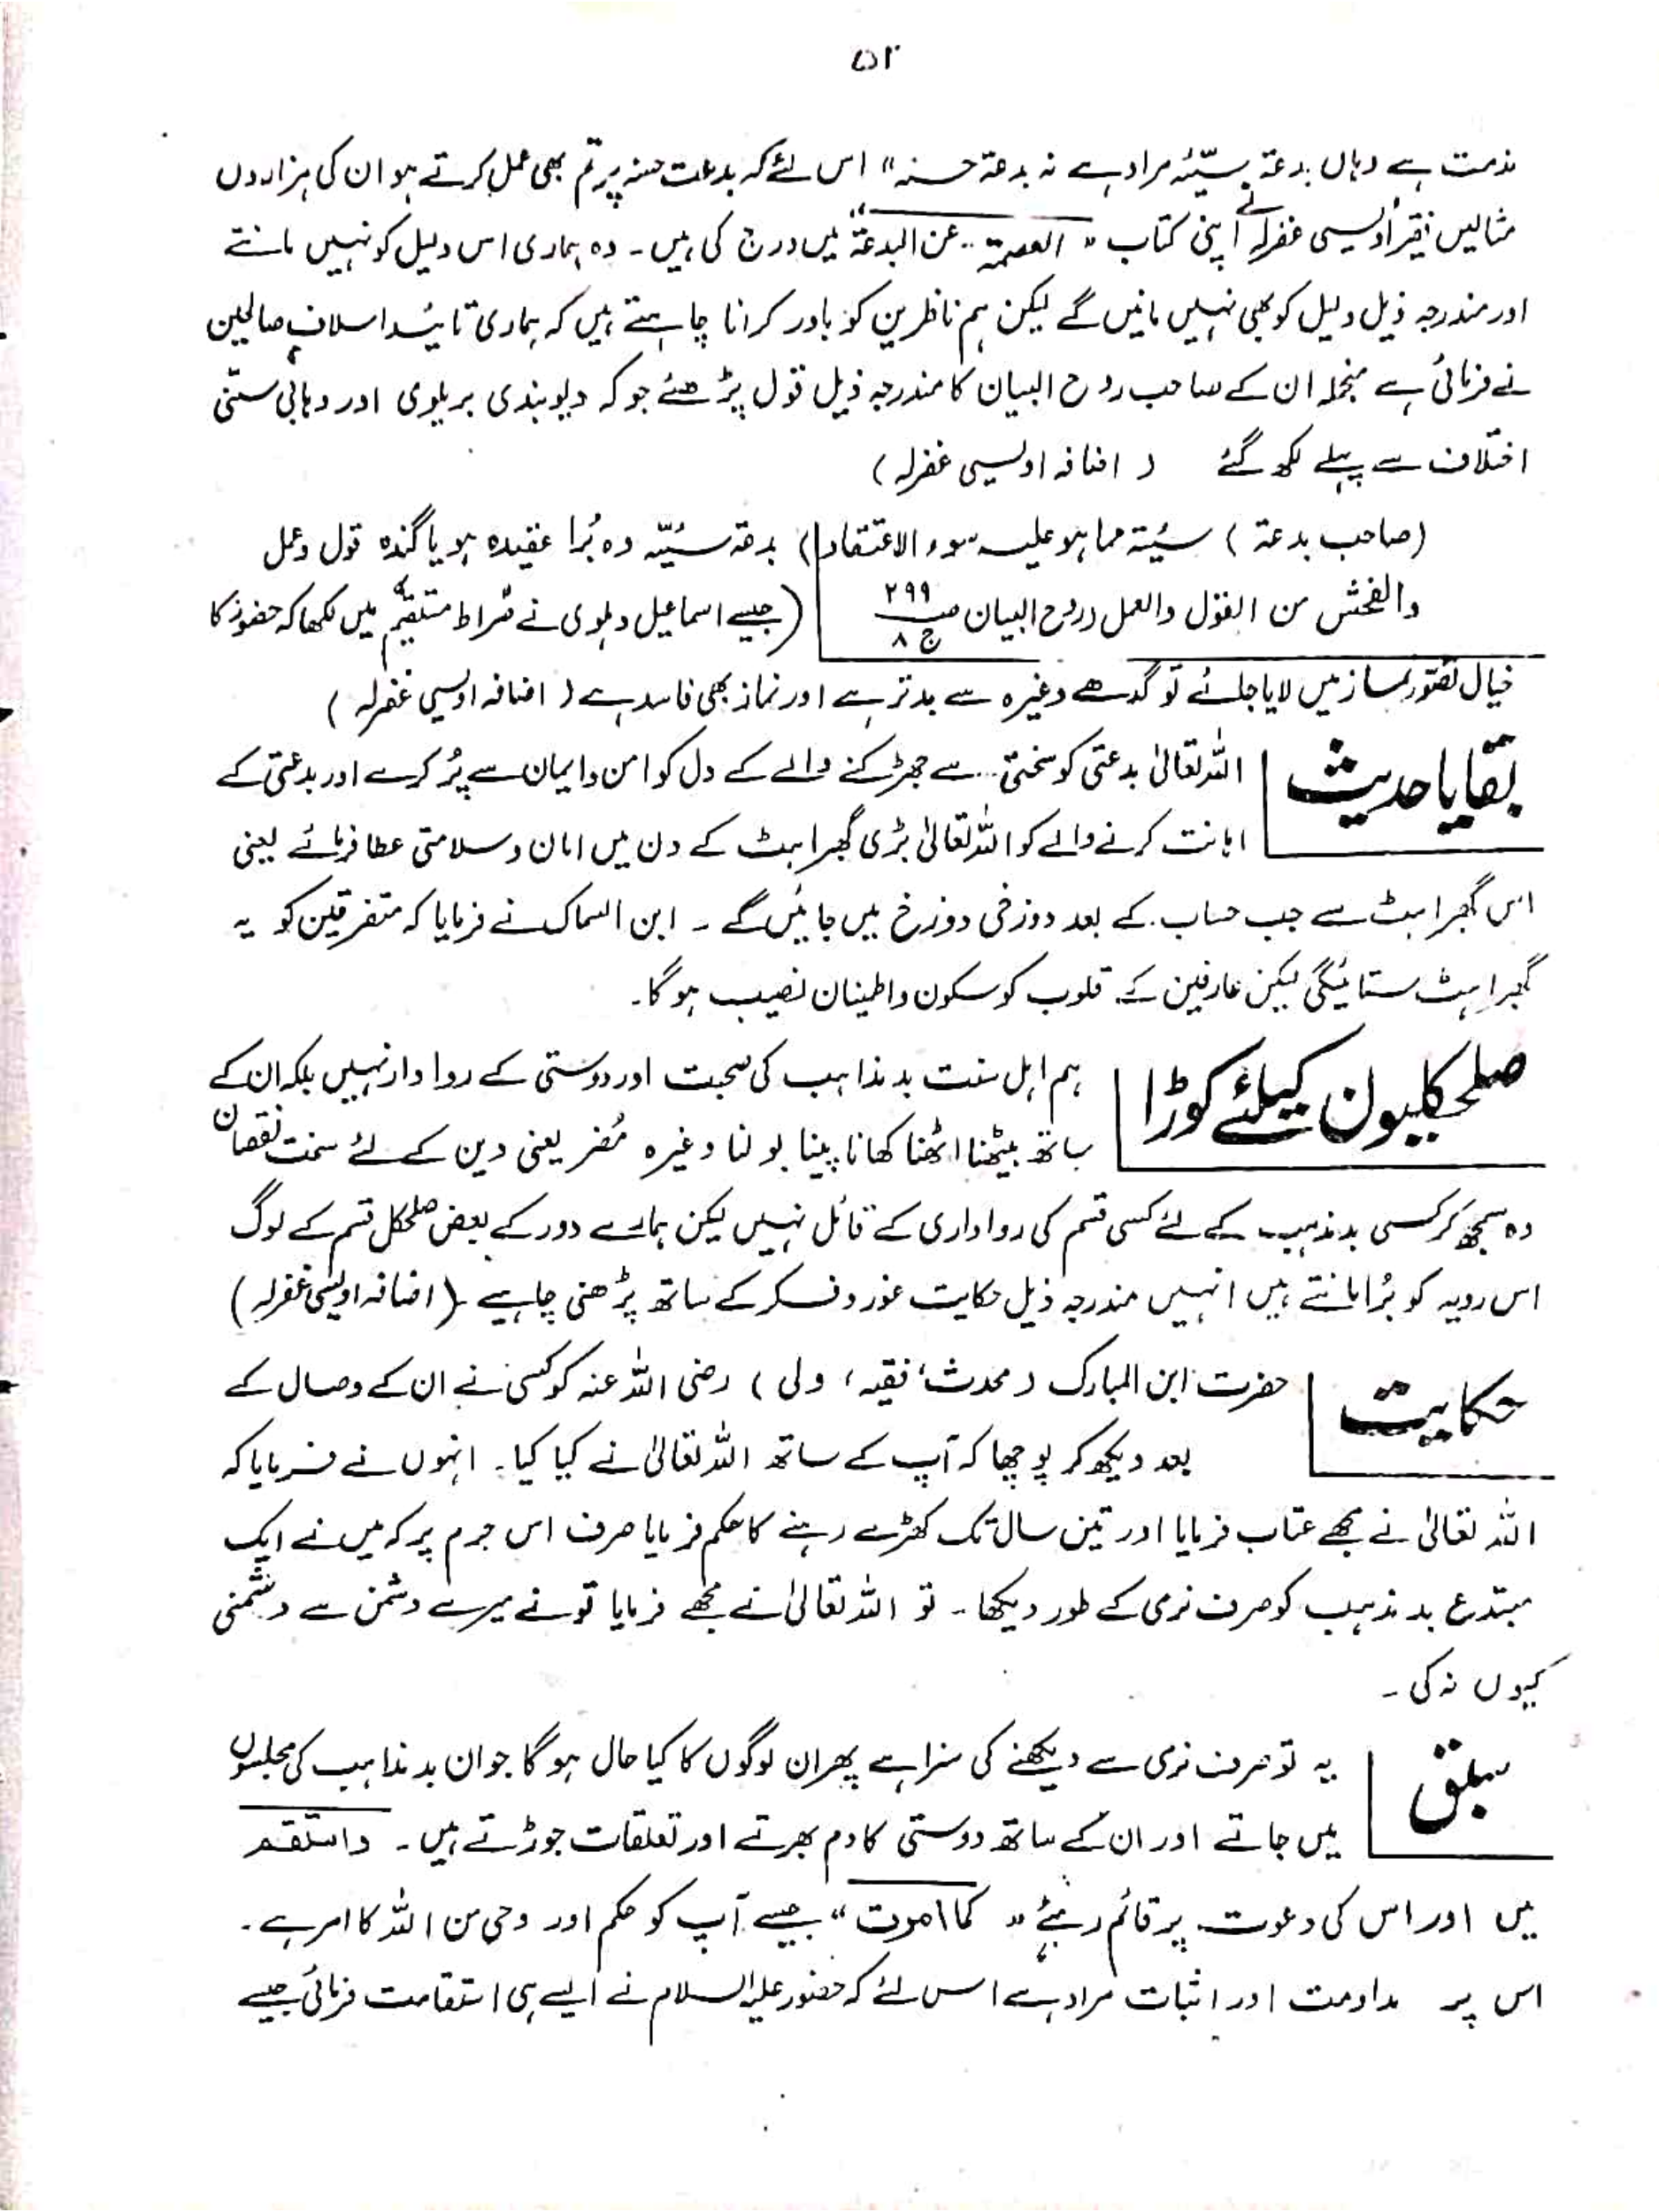 ۵۲
مذمت ہے وہاں بدعۃ سیّئہ مراد ہے نہ بدعۃ حسنہ" اس لئے کہ بدعت حسنہ پر تم بھی عمل کرتے ہو ان کی ہزاروں
مثالیں فقیر اُویسی غفرلہٗ نے اپنی کتاب " العصمۃ .. عن البدعۃ" میں درج کی ہیں۔ وہ ہماری اس دلیل کو نہیں مانتے
اور مندرجہ ذیل دلیل کو بھی نہیں مانیں گے لیکن ہم ناظرین کو باور کرانا چاہتے ہیں کہ ہماری تائید اسلاف صالحین
نے فرمائی ہے منجملہ ان کے صاحب روح البیان کا مندرجہ ذیل قول پڑھئے جو کہ دیوبندی بریلوی اور وہابی سنّی
اختلاف سے پہلے لکھ گئے ( اضافہ اویسی غفرلہ )
(صاحب بدعۃ ) سیُتہ مما ہو علیہ سوء الاعتقاد ) بدعۃ سیُتہ وہ بُرا عقیدہ ہو یا گندہ قول وعمل
والفحش من القول والعمل (روح البیان صـ ۲۹۹ ج ۸ (جیسے اسماعیل دہلوی نے صراط مستقیم میں لکھا کہ حضور کا
خیال تصوّر نماز میں لایا جائے تو گدھے وغیرہ سے بدتر ہے اور نماز بھی فاسد ہے ( اضافہ اویسی غفرلہ )
بقایا حدیث اللہ تعالیٰ بدعتی کو سختی .. سے جھڑکنے والے کے دل کو امن وایمان سے پُر کرے اور بدعتی کے
اہانت کرنے والے کو اللہ تعالیٰ بڑی گھبراہٹ کے دن میں امان و سلامتی عطا فرمائے یعنی
اس گھبراہٹ سے جب حساب کے بعد دوزخی دوزخ میں جائیں گے ۔ ابن السماک نے فرمایا کہ متفرقین کو یہ
گبراہٹ ستائیگی لیکن عارفین کے قلوب کو سکون واطینان نصیب ہو گا۔
صلحکلیون کیلئے کوڑا ہم اہل سنت بدمذاہب کی صحبت اور دوستی کے روادار نہیں بلکہ ان کے
ساتھ بیٹھنا اٹھنا کھانا پینا بولنا وغیرہ مُضر یعنی دین کے لئے سخت نقصان
دہ سمجھ کر کسی بدمذہب کے لئے کسی قسم کی رواداری کے قائل نہیں لیکن ہمارے دور کے بعض صلحکل قسم کے لوگ
اس رویہ کو بُرا مانتے ہیں انہیں مندرجہ ذیل حکایت غور وفکر کے ساتھ پڑھنی چاہیے (اضافہ اویسی غفرلہ)
حکایت حضرت ابن المبارک (محدث، فقیہ، ولی ) رضی اللہ عنہ کو کسی نے ان کے وصال کے
بعد دیکھ کر پوچھا کہ آپ کے ساتھ اللہ تعالیٰ نے کیا کیا۔ انہوں نے فرمایا کہ
اللہ تعالیٰ نے مجھے عتاب فرمایا اور تین سال تک کھڑے رہنے کا حکم فرمایا صرف اس جرم پر کہ میں نے ایک
مبتدع بدمذہب کو صرف نرمی کے طور دیکھا۔ تو اللہ تعالیٰ نے مجھے فرمایا تو نے میرے دشمن سے دشمنی
کیوں نہ کی ۔
سبق یہ تو صرف نرمی سے دیکھنے کی سزا ہے پھر ان لوگوں کا کیا حال ہو گا جو ان بدمذاہب کی مجلسوں
میں جاتے اور ان کے ساتھ دوستی کا دم بھرتے اور تعلقات جوڑتے ہیں۔ واستقم
یں اور اس کی دعوت پر قائم رہیئے " کما امرت " جیسے آپ کو حکم اور وحی من اللہ کا امر ہے ۔
اس پر مداومت اور اثبات مراد ہے اس لئے کہ حضور علیہ السلام نے ایسے ہی استقامت فرمائی جیسے